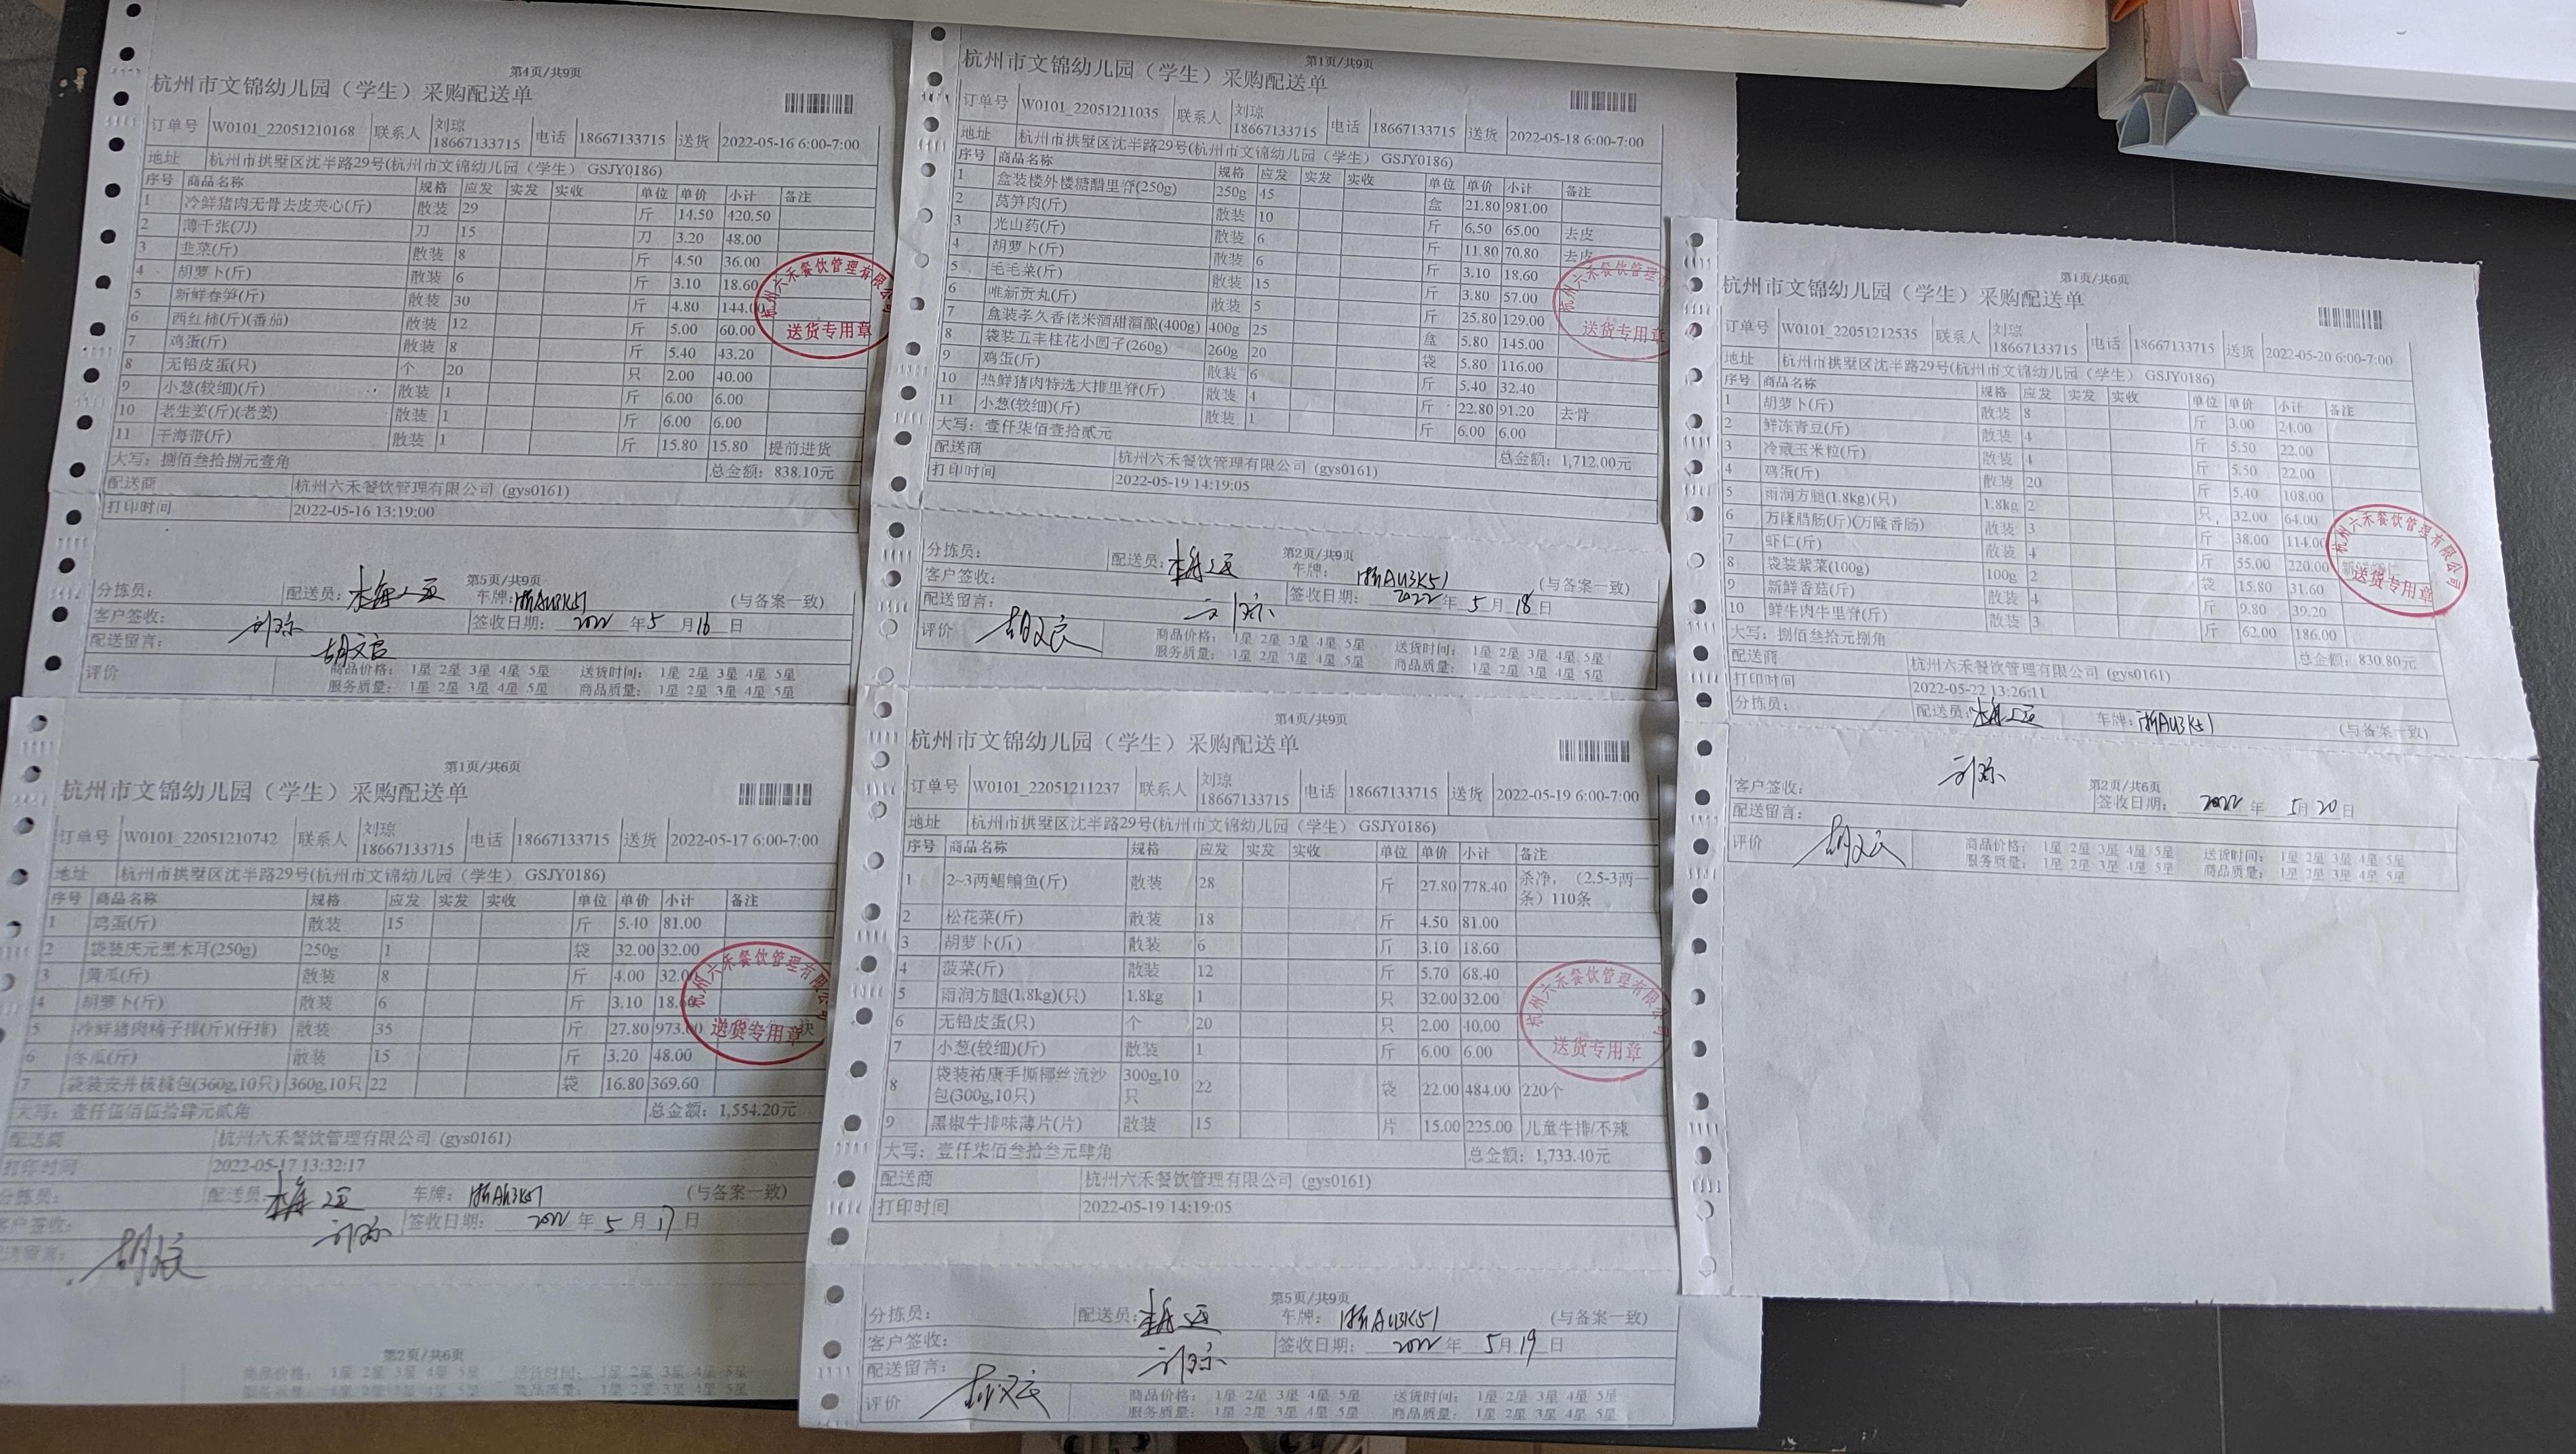 第4页/共9页
杭州市文锦幼儿园（学生）采购配送单
订单号 W0101_22051210168 联系人 刘琼 18667133715 电话 18667133715 送货 2022-05-16 6:00-7:00
地址 杭州市拱墅区沈半路29号(杭州市文锦幼儿园（学生）GSJY0186)
序号 商品名称 规格 应发 实发 实收 单位 单价 小计 备注
1 冷鲜猪肉无骨去皮夹心(斤) 散装 29 斤 14.50 420.50
2 薄千张(刀) 刀 15 刀 3.20 48.00
3 韭菜(斤) 散装 8 斤 4.50 36.00
4 胡萝卜(斤) 散装 6 斤 3.10 18.60
5 新鲜春笋(斤) 散装 30 斤 4.80 144.00
6 西红柿(斤)(番茄) 散装 12 斤 5.00 60.00
7 鸡蛋(斤) 散装 8 斤 5.40 43.20
8 无铅皮蛋(只) 个 20 只 2.00 40.00
9 小葱(较细)(斤) 散装 1 斤 6.00 6.00
10 老生姜(斤)(老姜) 散装 1 斤 6.00 6.00
11 干海带(斤) 散装 1 斤 15.80 15.80 提前进货
大写：捌佰叁拾捌元壹角 总金额：838.10元
配送商 杭州六禾餐饮管理有限公司 (gys0161)
打印时间 2022-05-16 13:19:00
杭州六禾餐饮管理有限公司
送货专用章
第5页/共9页
分拣员： 配送员： 车牌：浙AU3K51 (与备案一致)
客户签收： 刘琼 签收日期： 2022 年 5 月 16 日
配送留言：
评价 商品价格： 1星 2星 3星 4星 5星 送货时间： 1星 2星 3星 4星 5星
服务质量： 1星 2星 3星 4星 5星 商品质量： 1星 2星 3星 4星 5星
第1页/共6页
杭州市文锦幼儿园（学生）采购配送单
订单号 W0101_22051210742 联系人 刘琼 18667133715 电话 18667133715 送货 2022-05-17 6:00-7:00
地址 杭州市拱墅区沈半路29号(杭州市文锦幼儿园（学生）GSJY0186)
序号 商品名称 规格 应发 实发 实收 单位 单价 小计 备注
1 鸡蛋(斤) 散装 15 斤 5.40 81.00
2 袋装庆元黑木耳(250g) 250g 1 袋 32.00 32.00
3 黄瓜(斤) 散装 8 斤 4.00 32.00
4 胡萝卜(斤) 散装 6 斤 3.10 18.60
5 冷鲜猪肉精子排(斤)(仔排) 散装 35 斤 27.80 973.00 块
6 冬瓜(斤) 散装 15 斤 3.20 48.00
7 袋装安井核桃包(360g,10只) 360g,10只 22 袋 16.80 369.60
大写：壹仟伍佰伍拾肆元贰角 总金额：1,554.20元
配送商 杭州六禾餐饮管理有限公司 (gys0161)
打印时间 2022-05-17 13:32:17
杭州六禾餐饮管理有限公司
送货专用章
分拣员： 配送员： 车牌：浙AU3K51 (与备案一致)
客户签收： 刘琼 签收日期： 2022 年 5 月 17 日
配送留言：
第2页/共6页
商品价格： 1星 2星 3星 4星 5星 送货时间： 1星 2星 3星 4星 5星
服务质量： 1星 2星 3星 4星 5星 商品质量： 1星 2星 3星 4星 5星
第1页/共9页
杭州市文锦幼儿园（学生）采购配送单
订单号 W0101_22051211035 联系人 刘琼 18667133715 电话 18667133715 送货 2022-05-18 6:00-7:00
地址 杭州市拱墅区沈半路29号(杭州市文锦幼儿园（学生）GSJY0186)
序号 商品名称 规格 应发 实发 实收 单位 单价 小计 备注
1 盒装楼外楼糖醋里脊(250g) 250g 45 盒 21.80 981.00
2 莴笋肉(斤) 散装 10 斤 6.50 65.00 去皮
3 光山药(斤) 散装 6 斤 11.80 70.80 去皮
4 胡萝卜(斤) 散装 6 斤 3.10 18.60
5 毛毛菜(斤) 散装 15 斤 3.80 57.00
6 唯新贡丸(斤) 散装 5 斤 25.80 129.00
7 盒装孝久香佬米酒甜酒酿(400g) 400g 25 盒 5.80 145.00
8 袋装五丰桂花小圆子(260g) 260g 20 袋 5.80 116.00
9 鸡蛋(斤) 散装 6 斤 5.40 32.40
10 热鲜猪肉特选大排里脊(斤) 散装 4 斤 22.80 91.20 去骨
11 小葱(较细)(斤) 散装 1 斤 6.00 6.00
大写：壹仟柒佰壹拾贰元 总金额：1,712.00元
配送商 杭州六禾餐饮管理有限公司 (gys0161)
打印时间 2022-05-19 14:19:05
杭州六禾餐饮管理有限公司
送货专用章
第2页/共9页
分拣员： 配送员： 车牌： 浙AU3K51 (与备案一致)
客户签收： 刘琼 签收日期： 2022 年 5 月 18 日
配送留言：
评价 商品价格： 1星 2星 3星 4星 5星 送货时间： 1星 2星 3星 4星 5星
服务质量： 1星 2星 3星 4星 5星 商品质量： 1星 2星 3星 4星 5星
第4页/共9页
杭州市文锦幼儿园（学生）采购配送单
订单号 W0101_22051211237 联系人 刘琼 18667133715 电话 18667133715 送货 2022-05-19 6:00-7:00
地址 杭州市拱墅区沈半路29号(杭州市文锦幼儿园（学生）GSJY0186)
序号 商品名称 规格 应发 实发 实收 单位 单价 小计 备注
1 2~3两鲳鳊鱼(斤) 散装 28 斤 27.80 778.40 杀净，（2.5-3两一条）110条
2 松花菜(斤) 散装 18 斤 4.50 81.00
3 胡萝卜(斤) 散装 6 斤 3.10 18.60
4 菠菜(斤) 散装 12 斤 5.70 68.40
5 雨润方腿(1.8kg)(只) 1.8kg 1 只 32.00 32.00
6 无铅皮蛋(只) 个 20 只 2.00 40.00
7 小葱(较细)(斤) 散装 1 斤 6.00 6.00
8 袋装祐康手撕椰丝流沙包(300g,10只) 300g,10只 22 袋 22.00 484.00 220个
9 黑椒牛排味薄片(片) 散装 15 片 15.00 225.00 儿童牛排/不辣
大写：壹仟柒佰叁拾叁元肆角 总金额：1,733.40元
配送商 杭州六禾餐饮管理有限公司 (gys0161)
打印时间 2022-05-19 14:19:05
杭州六禾餐饮管理有限公司
送货专用章
第5页/共9页
分拣员： 配送员： 车牌： 浙AU3K51 (与备案一致)
客户签收： 刘琼 签收日期： 2022 年 5月 19 日
配送留言：
评价 商品价格： 1星 2星 3星 4星 5星 送货时间： 1星 2星 3星 4星 5星
服务质量： 1星 2星 3星 4星 5星 商品质量： 1星 2星 3星 4星 5星
第1页/共6页
杭州市文锦幼儿园（学生）采购配送单
订单号 W0101_22051212535 联系人 刘琼 18667133715 电话 18667133715 送货 2022-05-20 6:00-7:00
地址 杭州市拱墅区沈半路29号(杭州市文锦幼儿园（学生）GSJY0186)
序号 商品名称 规格 应发 实发 实收 单位 单价 小计 备注
1 胡萝卜(斤) 散装 8 斤 3.00 24.00
2 鲜冻青豆(斤) 散装 4 斤 5.50 22.00
3 冷藏玉米粒(斤) 散装 4 斤 5.50 22.00
4 鸡蛋(斤) 散装 20 斤 5.40 108.00
5 雨润方腿(1.8kg)(只) 1.8kg 2 只 32.00 64.00
6 万隆腊肠(斤)(万隆香肠) 散装 3 斤 38.00 114.00
7 虾仁(斤) 散装 4 斤 55.00 220.00
8 袋装紫菜(100g) 100g 2 袋 15.80 31.60
9 新鲜香菇(斤) 散装 4 斤 9.80 39.20
10 鲜牛肉牛里脊(斤) 散装 3 斤 62.00 186.00
大写：捌佰叁拾元捌角 总金额：830.80元
配送商 杭州六禾餐饮管理有限公司 (gys0161)
打印时间 2022-05-22 13:26:11
杭州六禾餐饮管理有限公司
送货专用章
分拣员： 配送员： 车牌：浙AU3K51 (与备案一致)
第2页/共6页
客户签收： 刘琼 签收日期： 2022 年 5月 20 日
配送留言：
评价 商品价格： 1星 2星 3星 4星 5星 送货时间： 1星 2星 3星 4星 5星
服务质量： 1星 2星 3星 4星 5星 商品质量： 1星 2星 3星 4星 5星